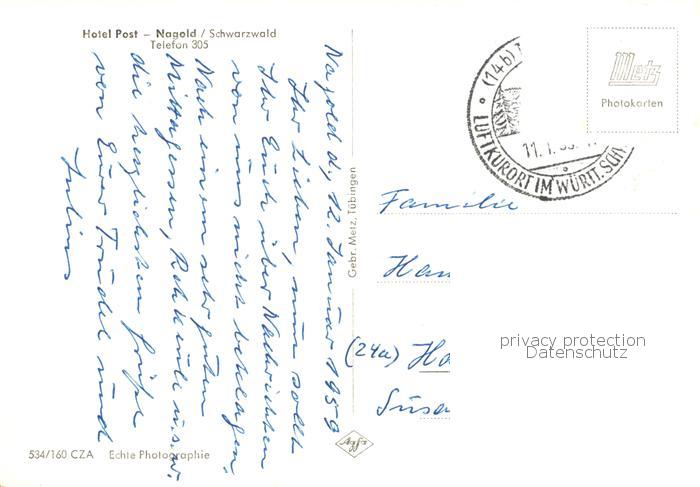 Hotel Post – Nagold / Schwarzwald
Telefon 305
Nagold d, 12. Januar 1959
Ihr Lieben, nun sollt
Ihr Euch über Nachrichten
von uns nicht beklagen.
Nach einem sehr guten
Mittagessen, Rehkeule u.s.w.
die herzlichsten Grüße
von Eurer Trudel und
Julius
534/160 CZA Echte Photographie
Gebr. Metz, Tübingen
Agfa
(14b)
LUFTKURORT IM WÜRTT. SCH
11.1.
Metz
Photokarten
Familie
Han
(24a) Ha
Susa
privacy protection
Datenschutz